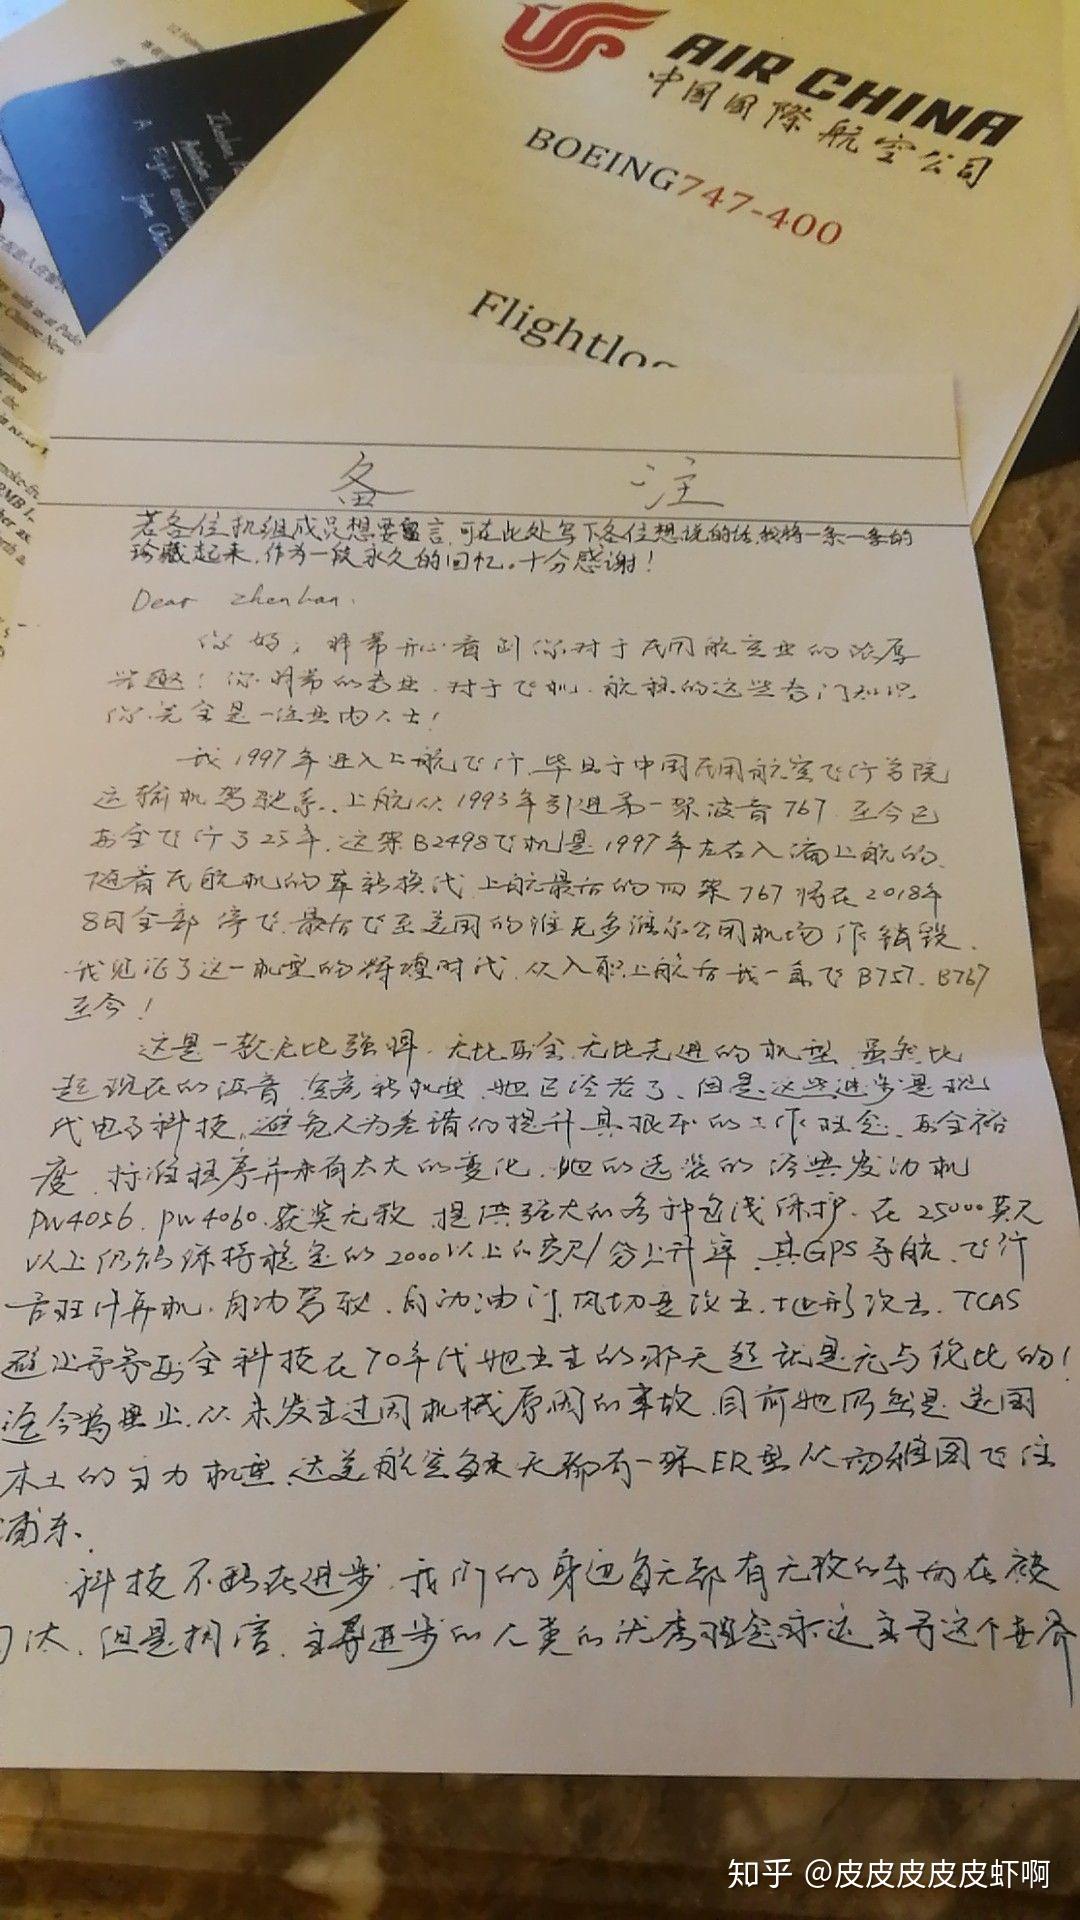 AIR CHINA
中國國際航空公司
BOEING747-400
Flightlog
A Flight
from China
备 注
若各位机组成员想要留言,可在此处写下各位想说的话,我将一条一条的
珍藏起来,作为一段永久的回忆。十分感谢!
Dear zhenhan.
你好,非常开心看到你对于民用航空业的浓厚
兴趣!你非常的专业,对于飞机、航材的这些专门知识
你完全是一位业内人士!
我1997年进入上航飞行,毕业于中国民用航空飞行学院
运输机驾驶系。上航从1993年引进第一架波音767 至今已
安全飞行了25年,这架B2498飞机是1997年左右入编上航的,
随着民航机的革新换代,上航最后的四架767将在2018年
8月全部停飞,最后飞至美国的维克多维尔公用机场作销毁,
我见证了这一机型的辉煌时代,从入职上航后我一直飞B757、B767
至今!
这是一款无比强悍,无比安全,无比先进的机型,虽然比
起现在的波音,空客新机型,她已经老了,但是这些进步是现
代电子科技,避免人为差错的提升,其根本的工作理念,安全裕
度,标准程序并未有太大的变化,她的选装的经典发动机
PW4056、PW4060,获奖无数,提供强大的各种包线保护,在25000英尺
以上仍能保持稳定的2000以上的英尺/分上升率,其GPS导航、飞行
管理计算机、自动驾驶、自动油门、风切变改出、地形改出、TCAS
避让等等安全科技在70年代她出生的那天起就是无与伦比的!
迄今为止,从未发生过因机械原因的事故,目前她仍然是美国
本土的主力机型,达美航空每天都有一班ER型从西雅图飞往
浦东。
科技不断在进步,我们的身边每天都有无数的东西在被
淘汰,但是相信,主导进步的人类的优秀理念永远主导这个世界
知乎 @皮皮皮皮皮虾啊